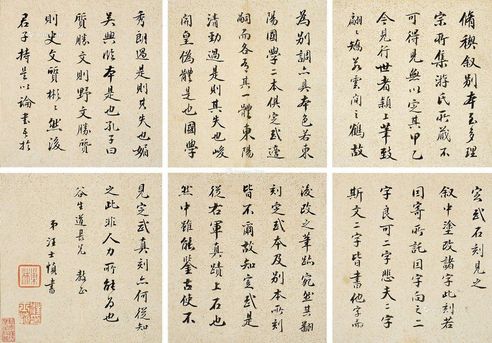 脩禊叙別本至多理
宗所集游氏所藏不
可得見無以定其甲乙
今見行世者潁上筆致
翩翩矯若雲間之鶴故
為別調而具本色若東
陽國學二本俱定武遺
嗣而各有其一體東陽
清勁過是則其失也峻
開皇偽體是也國學
秀朗過是則其失也媚
吳興臨本是也孔子曰
質勝文則野文勝質
則史文質彬彬然後
君子持是以論書於
定武石刻見之
叙中塗改諸字此刻若
因寄所託因字向之二
字良可二字悲夫二字
斯文二字皆書他字而
後改之筆跡宛然其翻
刻定武本及別本所刻
皆不爾故知定武是
從右軍真蹟上石也
然中雖能鑒古使不
見定武真刻亦何從知
之此非人力所能為也
谷生道長兄 教正
弟汪士慎書